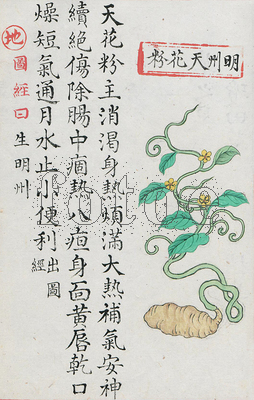 明州天花粉
天花粉主消渴身熱煩滿大熱補氣安神
續絕傷除腸中痼熱八疸身面黃唇乾口
燥短氣通月水止小便利出圖經
地圖經曰生明州